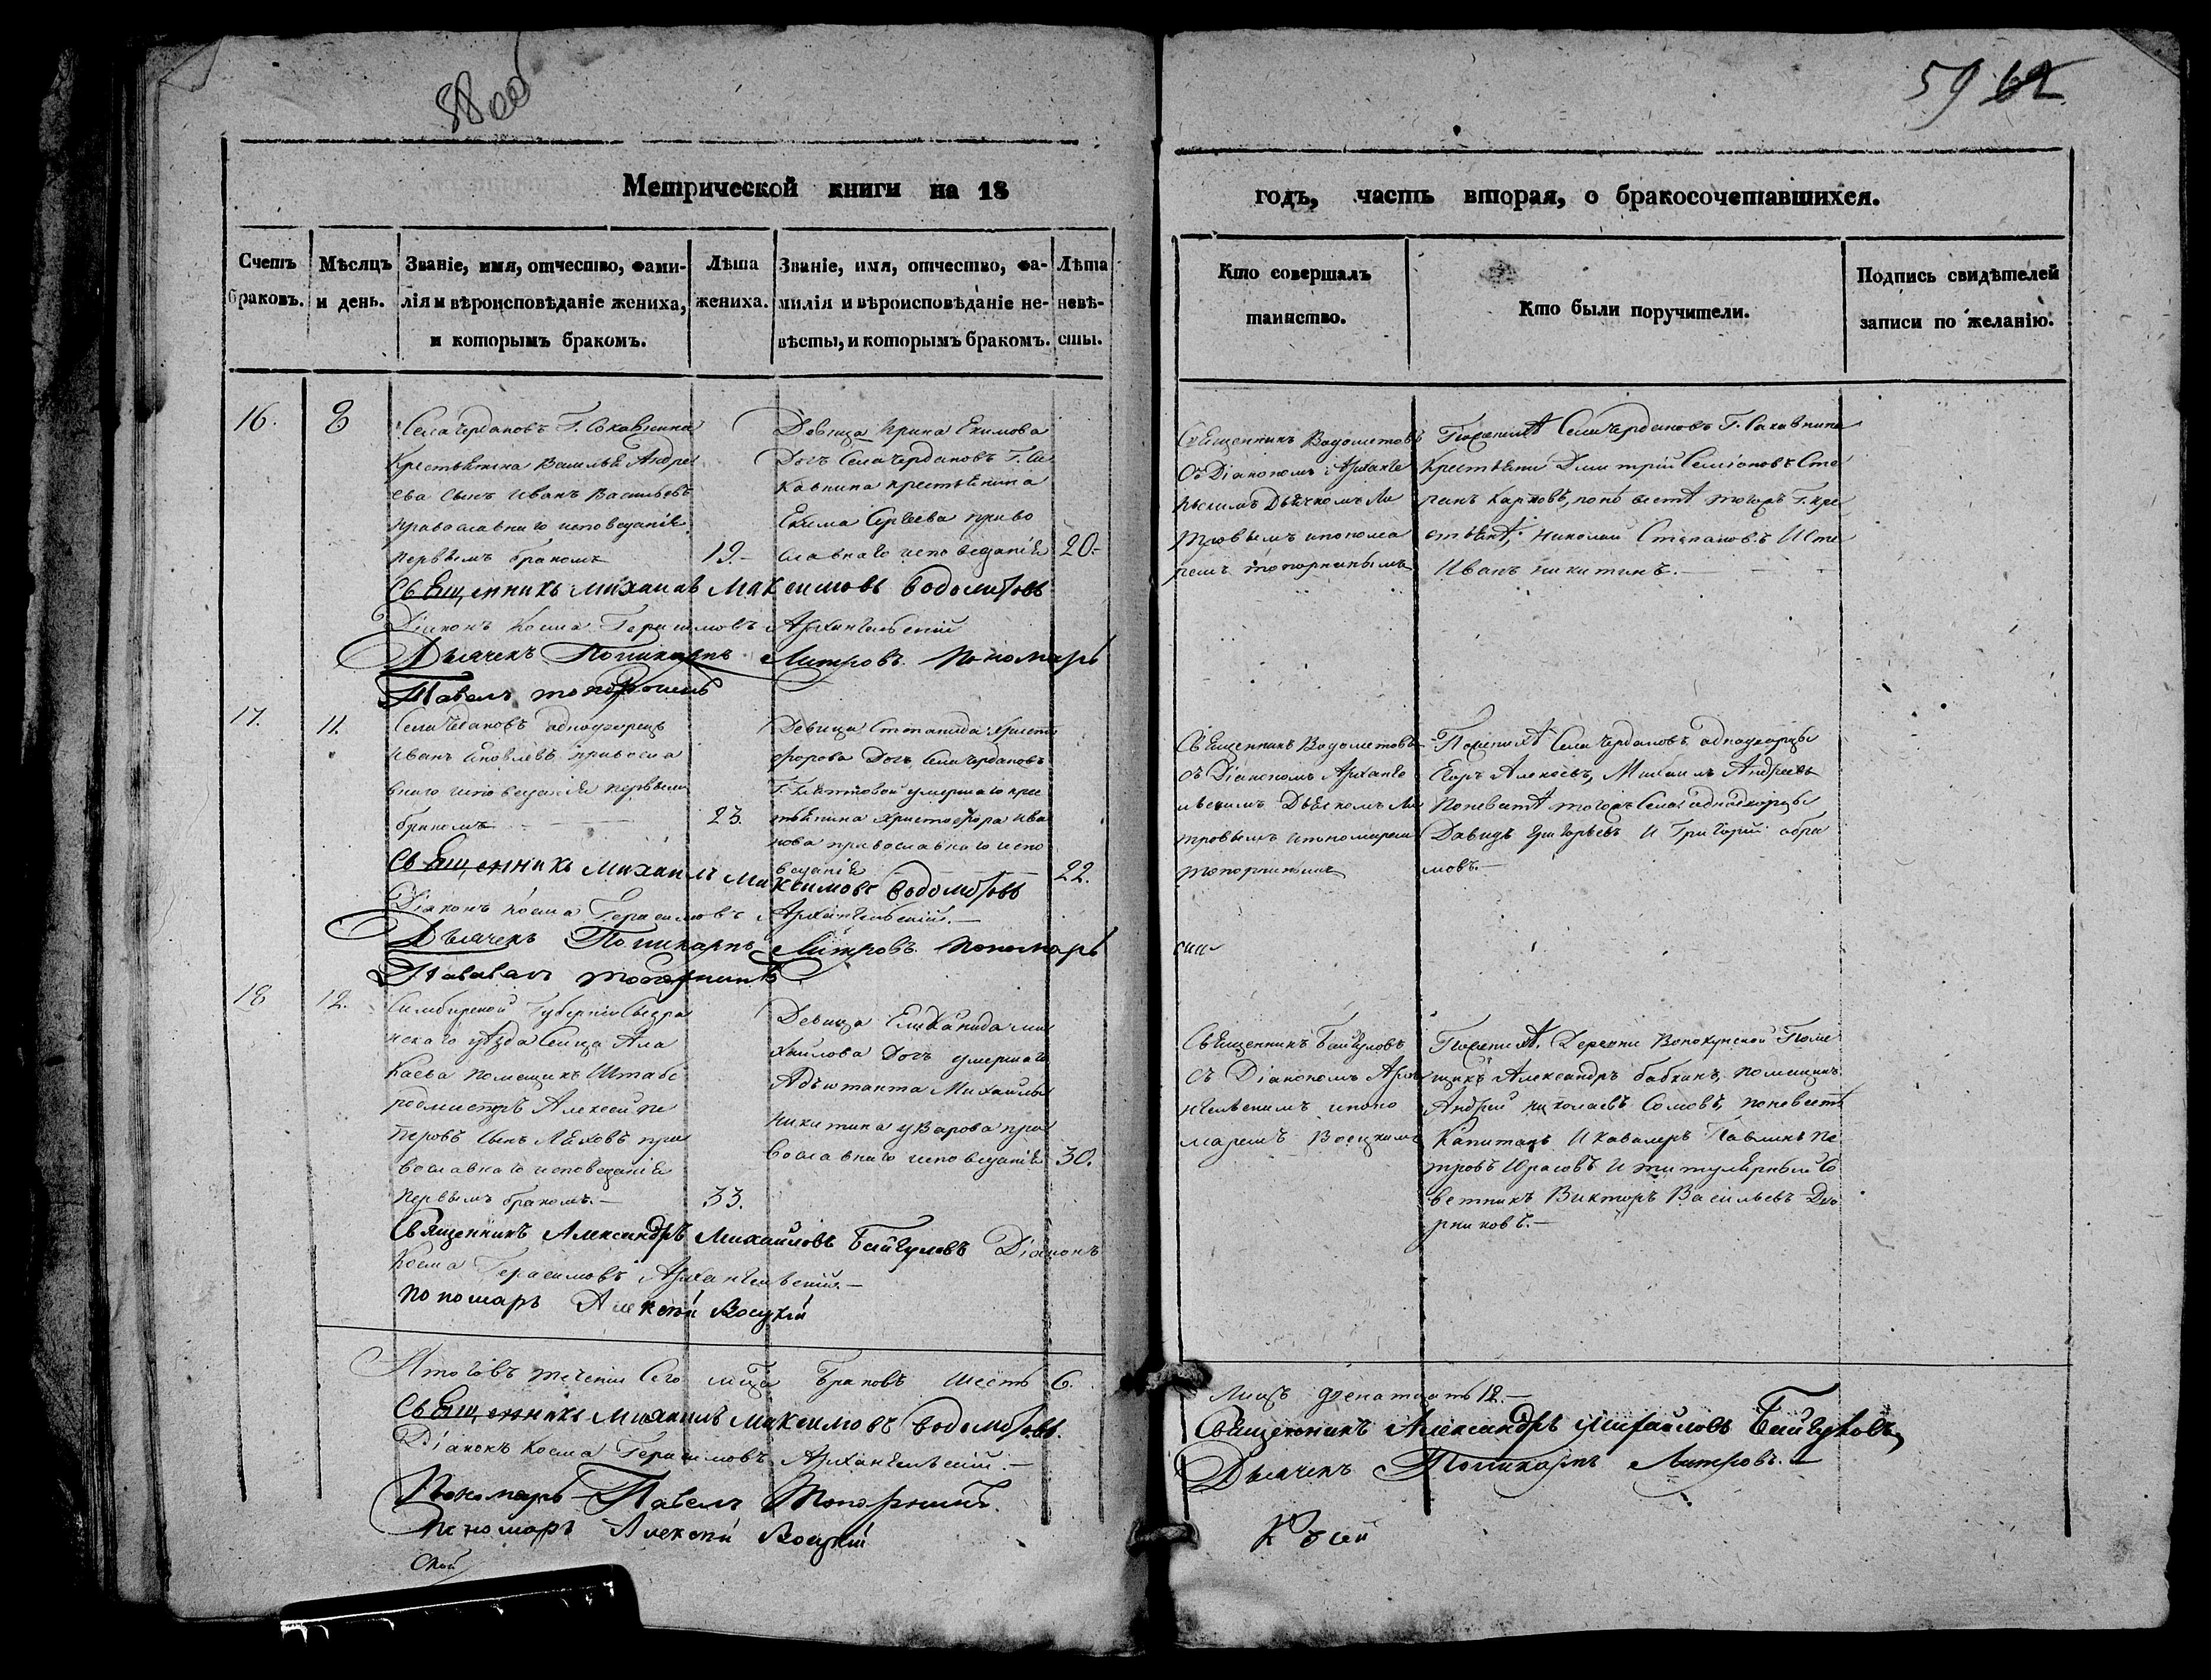 58 об
59 62
Метрической книги на 18
годъ, часть вторая, о бракосочетавшихся.
Счетъ браковъ.
Мѣсяцъ и день.
Званіе, имя, отчество, фами-
лія и вѣроисповѣданіе жениха,
и которымъ бракомъ.
Лѣта
жениха.
Званіе, имя, отчество, фа-
милія и вѣроисповѣданіе не-
вѣсты, и которымъ бракомъ.
Лѣта
невѣ-
сты.
Кто совершалъ
таинство.
Кто были поручители.
Подпись свидѣтелей
записи по желанію.
16.
8
Села Чердановъ Г. Сокавнина
Крестьянина Василья Андре
ева сынъ Иванъ Васильевъ
православнаго исповеданія
первымъ бракомъ
19.-
Девица Ирина Екимова
Дочь Села Чердановъ Г. Со
кавнина крестьянина
Екима Сергеева право
славнаго исповеданія
20.-
Священникъ Водометовъ
съ Діакономъ Арханге
льскимъ Дьячкомъ Ли
тровымъ и понома
ремъ Топорнинымъ
Села Чердановъ Г. Сакавнина
Крестьяни Димитрій Семіоновъ Сте
панъ Карповъ, по невестѣ тогожъ Г. кре
стьянѣ, Николай Степановъ И
Иванъ Никитинъ.-
Священникъ Михаилъ Максимовъ Водометовъ
Діаконъ Косма Герасимовъ Архангельскій
Дьячекъ Поликарпъ Литровъ. Пономарь
Павелъ Топорнинъ
17.
11.
Села Чедановъ однодворецъ
Иванъ Яковлевъ правосла
внаго исповеданія первымъ
бракомъ
23.
Девица Степанида Христо
форова Дочь Села Чердановъ
умершаго крес
тьянина Христофора Ива
нова православнаго испо
веданія
22.
Священникъ Водометовъ
съ Діакономъ Арханге
льскимъ Дьячкомъ Ли
тровымъ и пономаремъ
Топорнинымъ
Села Чердановъ однодворцы
Егоръ Алексеевъ, Михаилъ Андреевъ
По невестѣ тогожъ Села однодворцы
Давидъ Григорьевъ И Григорій Абра
мовъ.-
Священникъ Михаилъ Максимовъ Водометовъ
Діаконъ Косма Герасимовъ Архангельскій.-
Дьячекъ Поликарпъ Литровъ. Пономарь
Топорнинъ
сии
18
12.
Симбирской Губерніи Сызра
нскаго уѣзда Сельца Ала
каева помещикъ Штабс
родмистръ Алексей Пе
тровъ сынъ Ляховъ пра
вославнаго исповеданія
первымъ бракомъ.-
33.
Девица Еликанида Ми
хайлова Дочь умершаго
Адъютанта Михайлы
Никитина Уварова пра
вославнаго исповеданія
30.
Священникъ Байгуловъ
съ Діакономъ Арха
нгельскимъ и поно
маремъ Воецкимъ
Деревни Вопокунской Поме
щикъ Александръ Бабкинъ, помещикъ
Андрей Николаевъ Сомовъ, по невестѣ
Капитанъ И кавалеръ Павлинъ Пе
тровъ Юрасовъ И титулярный Со
ветникъ Викторъ Васильевъ Дво
рниковъ.-
Священникъ Александръ Михайловъ Байгуловъ Діаконъ
Косма Герасимовъ Архангельскій.-
Пономарь Алексѣй Воецкій
Итого въ теченіи Сего мца Браковъ шесть 6.
Лицъ двенатцать 12.-
Священникъ Михаилъ Максимовъ Водометовъ.
Діаконъ Косма Герасимовъ Архангельскій.-
Пономарь Павелъ Топорнинъ.
Пономарь Алексѣй Воецкій
Священникъ Александръ Михайловъ Байгуловъ
Дьячекъ Поликарпъ Литровъ.
Къ сей